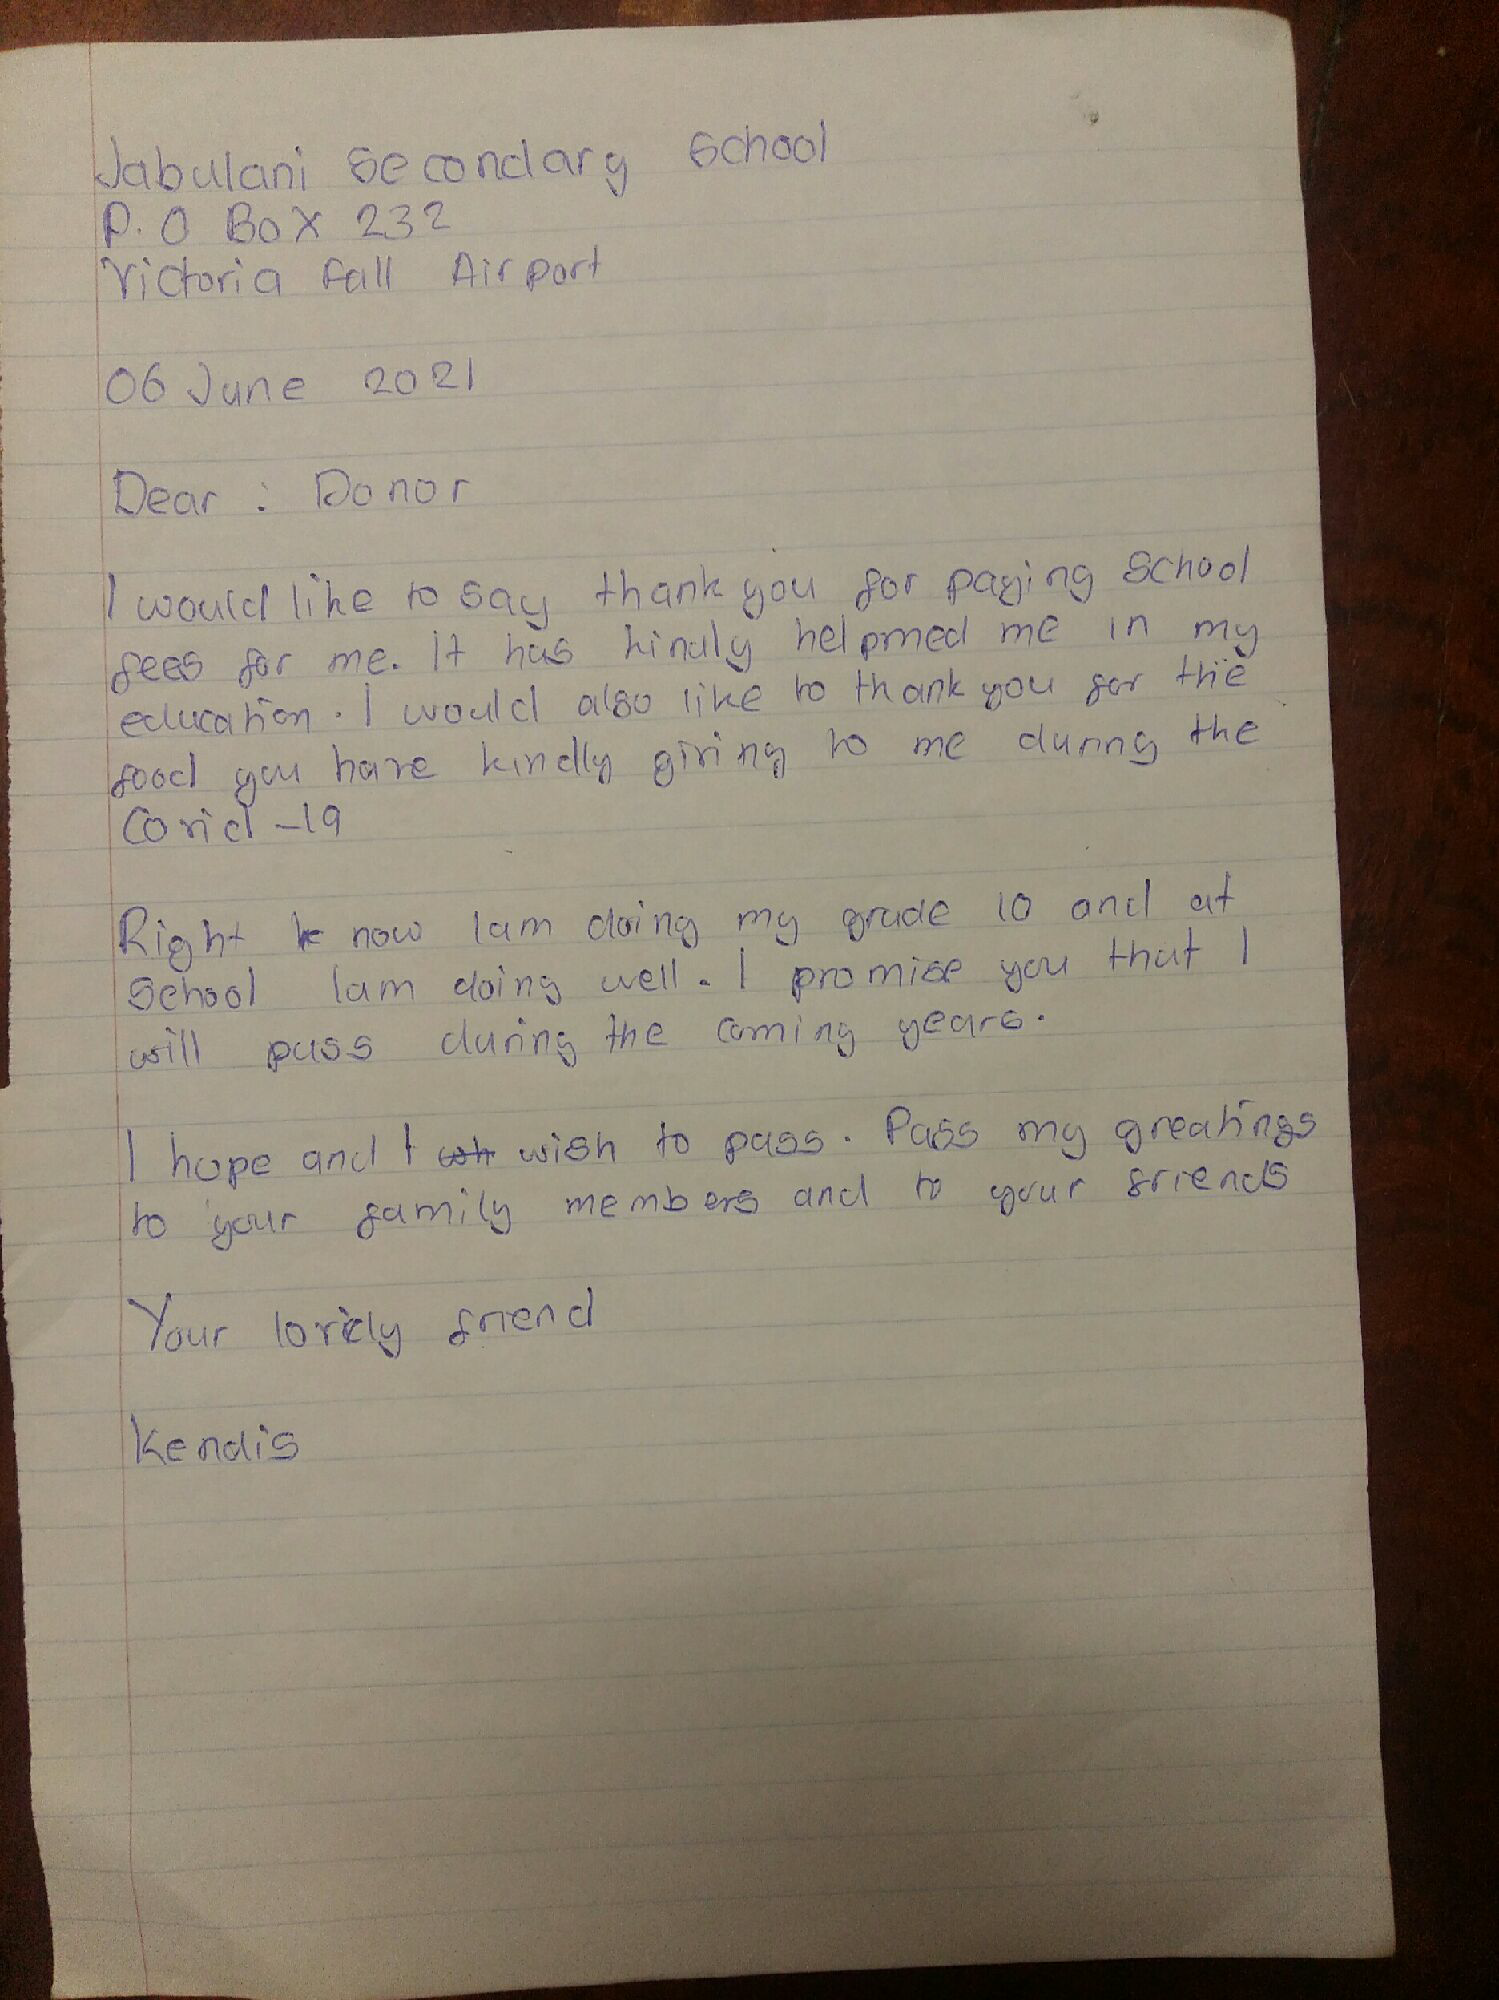 Jabulani Secondary School
P. O Box 232
Victoria fall Airport
06 June 2021
Dear : Donor
I would like to say thank you for paying School
fees for me. It has kindly helpmed me in my
education. I would also like to thank you for the
food you have kindly giving to me during the
Covid -19
Right know I am doing my grade 10 and at
School I am doing well. I promise you that I
will pass during the coming years.
I hope and I wish to pass. Pass my greatings
to your family members and to your friends
Your lovely friend
Kendis